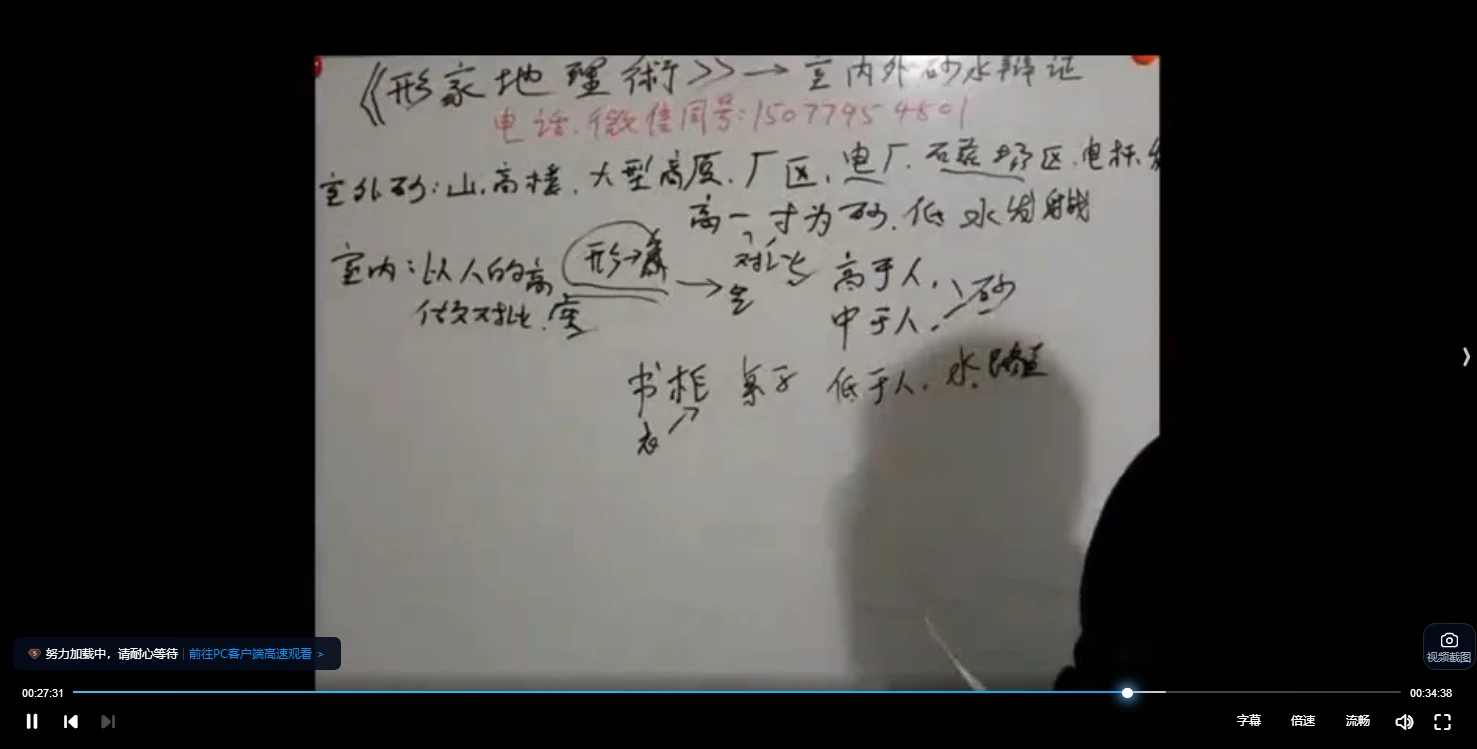 《形家地理術》→室内外砂水辩证
电话.微信同号:15077954801
室外砂:山.高楼.大型高厦.厂区.电厂.石 场区.电杆.
高一寸为砂.低水 射线
室内:以人的高 形→ → 对比 高于人.砂
做对比.
中于人.
书柜 桌子 低于人.水.路
衣
努力加载中，请耐心等待 | 前往PC客户端高速观看 >
视频截图
00:27:31
00:34:38
字幕 倍速 流畅